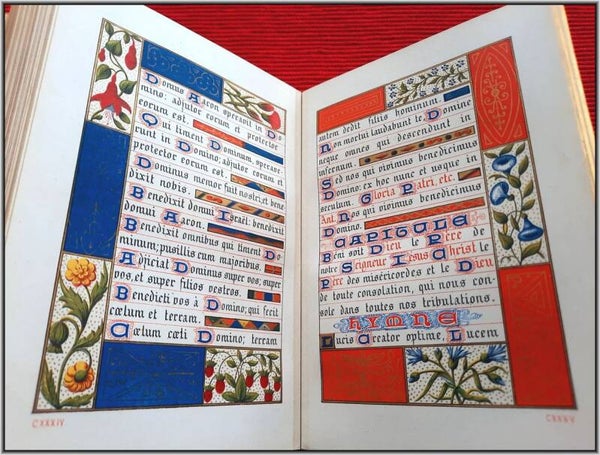 Domus Aaron speravit in Do
mino: adjutor eorum et protector
eorum est.
Qui timent Dominum, sperave
runt in Domino; adjutor eorum et
protector eorum est.
Dominus memor fuit nostri; et bene
dixit nobis.
Benedixit domui Israël: benedixit
domui Aaron.
Benedixit omnibus qui timent Do
minum; pusillis cum majoribus.
Adjiciat Dominus super vos; super
vos, et super filios vestros.
Benedicti vos à Domino; qui fecit
cœlum et terram.
Cœlum cœli Domino; terram
CXXXIV
autem dedit filiis hominum
Non mortui laudabunt te Domine
neque omnes qui descendunt in
infernum.
Sed nos qui vivimus benedicimus
Domino: ex hoc nunc et usque in
seculum. Gloria Patri, etc.
Ant. Nos qui vivimus benedicimus
Domino.
CAPITULE
Beni soit Dieu le Père de
notre Seigneur Jesus Christ le
Père des miséricordes et le Dieu
de toute consolation, qui nous con-
sole dans toutes nos tribulations.
HYMNE
Lucis Creator optime, Lucem
CXXXV